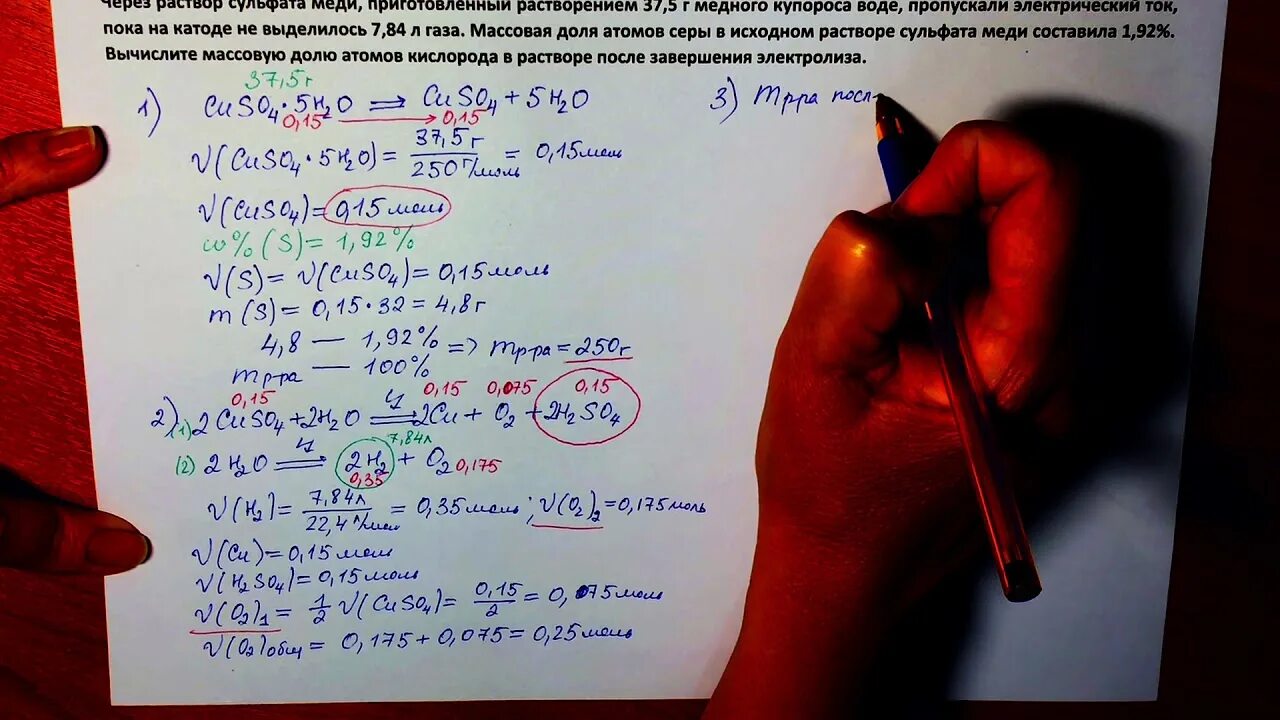 Через раствор сульфата меди, приготовленный растворением 37,5 г медного купороса воде, пропускали электрический ток,
пока на катоде не выделилось 7,84 л газа. Массовая доля атомов серы в исходном растворе сульфата меди составила 1,92%.
Вычислите массовую долю атомов кислорода в растворе после завершения электролиза.
37,5г
1) CuSO₄·5H₂O ⟹ CuSO₄ + 5H₂O
0,15 ⟶ 0,15
ν(CuSO₄·5H₂O) = 37,5г / 250г/моль = 0,15моль
ν(CuSO₄) = 0,15моль
ω%(S) = 1,92%
ν(S) = ν(CuSO₄) = 0,15моль
m(S) = 0,15·32 = 4,8г
4,8 — 1,92%
mр-ра — 100% => mр-ра = 250г
0,15 0,15 0,075 0,15
2) (1) 2CuSO₄ + 2H₂O ⟹ 2Cu + O₂ + 2H₂SO₄
7,84л
(2) 2H₂O ⟹ 2H₂ + O₂ 0,175
0,35
ν(H₂) = 7,84л / 22,4л/моль = 0,35моль; ν(O₂)₂ = 0,175моль
ν(Cu) = 0,15моль
ν(H₂SO₄) = 0,15моль
ν(O₂)₁ = 1/2 ν(CuSO₄) = 0,15/2 = 0,075моль
ν(O₂)общ = 0,175 + 0,075 = 0,25моль
3) mр-ра посл